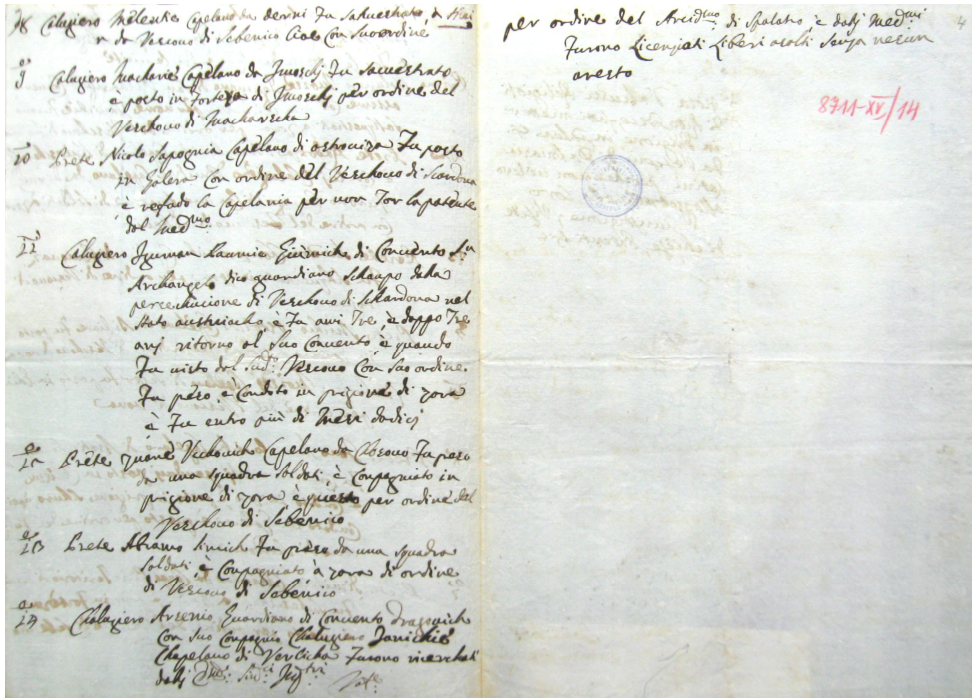 8 Calugiero Melentie Capelano da dernis Fu Sakuestrato, à
da Vescouo di Sebenico Con Suo ordine
9 Calugiero Macharie Capelano da Jmoschj Fu Sacuestrato
è posto in Forteza di Jmoschj per ordine del
Veschouo di Macharscha
10 Prete Nicolo Sapognia Capelano di ostroviza Fu posto
in Galera Con ordine del Veschouo di Scardona
è restado la Capelania per non Tor la patente
dal Med:mo
11 Calugiero Jguman Di Conuento
Archangelo dico guardiano Schampo dalla
persechucione di Veschouo di Schardona nel
Stato austriacho è Fu ani Tre, è doppo Tre
anj ritorno al Suo Conuento è quando
Fu uisto dal Sud:o Vescouo Con Suo ordine.
Fu preso, è Condoto in prigione di zara
è Fu entro più di Mesi dodicj
12 Prete zuane Vuchouich Capelano da Fu preso
da una squadra Soldati, è Conpagniato in
prigione di zara è questo per ordine del
Veschouo di Sebenico
13 Prete Abramo Simich Fu preso da una squadra
Soldati, è Conpagniato à zara di ordine
di Vescouo di Sebenico
14 Chalugiero Arsenio Guardiano di Conuento dragouich
Con Suo Conpagnio Chalugiero Janichie
Chapelano di Verlicha Furono ricerchati
dalj
per ordine del Arciu:mo di Spalatro è dalj Med:mi
Furono Licenziati Liberi asolti Senza nesun
aresto
4
8711-XV/14